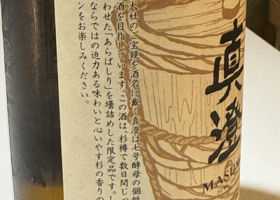 大社のご宝鏡を酒名に戴く真澄は七号酵母の個性
酒を目指しています。この酒は、杉樽で数日間じっ
わせた『あらばしり』を壜詰めした限定品です。し
ならではの迫力ある味わいと心いやす杉の香りの
ンをお楽しみください。
真澄
MASU